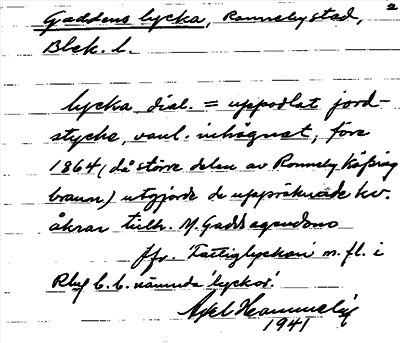 2
Gaddens lycka, Ronneby stad,
Blek. l.
lycka, dial. = uppodlat jord-
stycke, vanl. inhägnat; före
1864 (då större delen av Ronneby köping
brann) utgjorde de uppräknade kv.
åkrar tillh. M. Gadds egendom
Jfr. 'Fattiglyckan' m. fl. i
Rby b. b. nämnda 'lyckor'.
Axel
1941